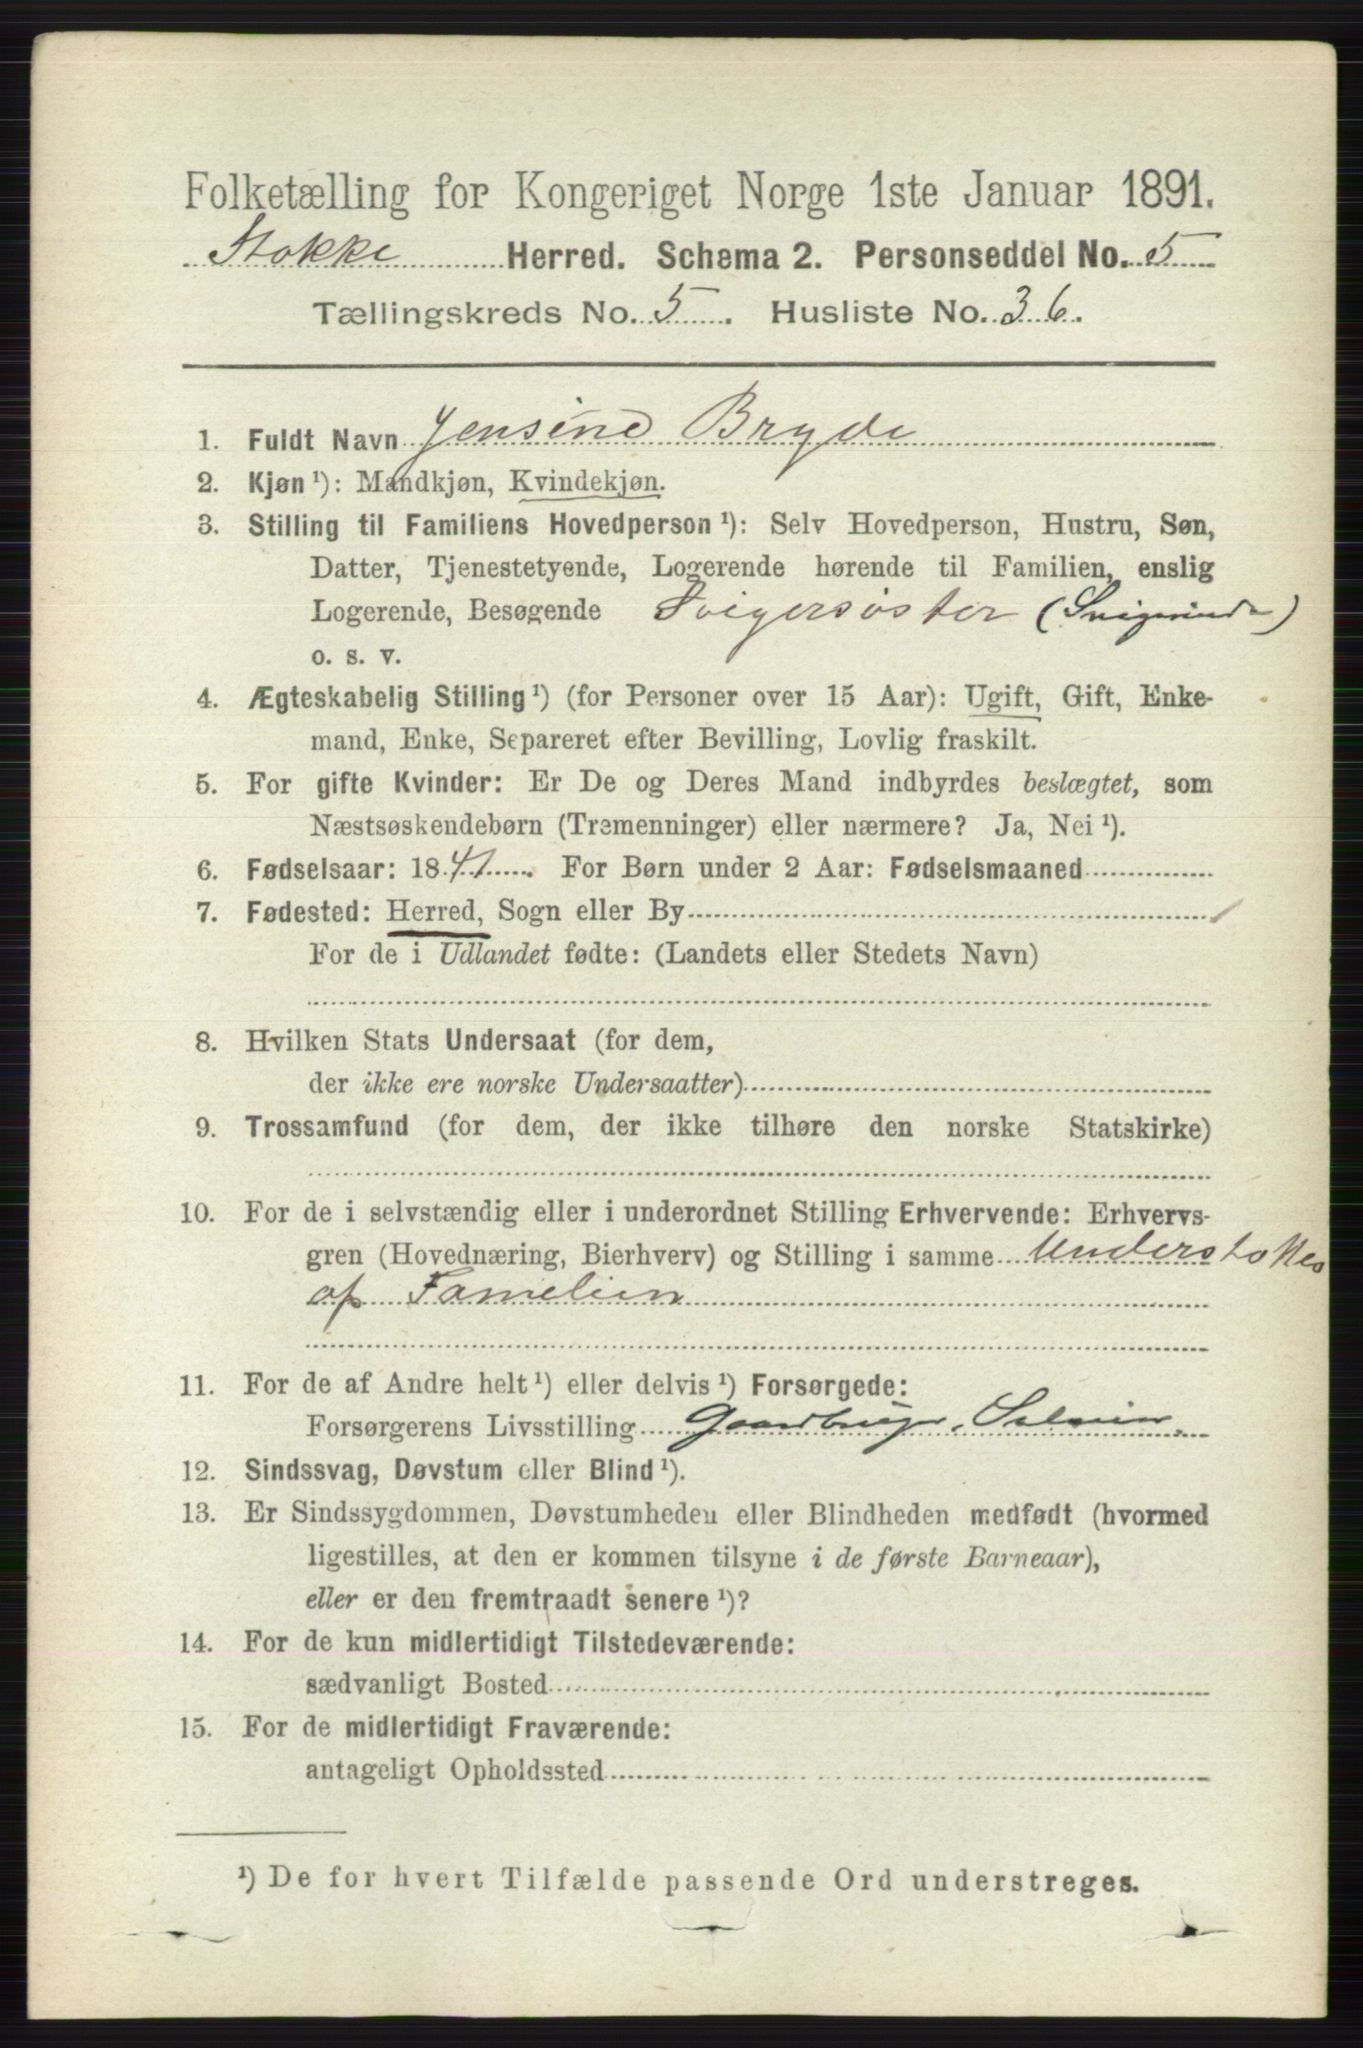 Folketælling for Kongeriget Norge 1ste Januar 1891.
Stokke Herred. Schema 2. Personseddel No. 5
Tællingskreds No. 5. Husliste No. 36.
1. Fuldt Navn Jensine Bryde
2. Kjøn ¹): Mandkjøn, Kvindekjøn.
3. Stilling til Familiens Hovedperson ¹): Selv Hovedperson, Hustru, Søn,
Datter, Tjenestetyende, Logerende hørende til Familien, enslig
Logerende, Besøgende Svigersøster (Svigerinde)
o. s. v.
4. Ægteskabelig Stilling ¹) (for Personer over 15 Aar): Ugift, Gift, Enke-
mand, Enke, Separeret efter Bevilling, Lovlig fraskilt.
5. For gifte Kvinder: Er De og Deres Mand indbyrdes beslægtet, som
Næstsøskendebørn (Tremenninger) eller nærmere? Ja, Nei ¹).
6. Fødselsaar: 1841. For Børn under 2 Aar: Fødselsmaaned
7. Fødested: Herred, Sogn eller By
For de i Udlandet fødte: (Landets eller Stedets Navn)
8. Hvilken Stats Undersaat (for dem,
der ikke ere norske Undersaatter)
9. Trossamfund (for dem, der ikke tilhøre den norske Statskirke)
10. For de i selvstændig eller i underordnet Stilling Erhvervende: Erhvervs-
gren (Hovednæring, Bierhverv) og Stilling i samme Understøttes
af Familien
11. For de af Andre helt ¹) eller delvis ¹) Forsørgede:
Forsørgerens Livsstilling Gaardbruger,
12. Sindssvag, Døvstum eller Blind ¹).
13. Er Sindssygdommen, Døvstumheden eller Blindheden medfødt (hvormed
ligestilles, at den er kommen tilsyne i de første Barneaar),
eller er den fremtraadt senere ¹)?
14. For de kun midlertidigt Tilstedeværende:
sædvanligt Bosted
15. For de midlertidigt Fraværende:
antageligt Opholdssted
¹) De for hvert Tilfælde passende Ord understreges.